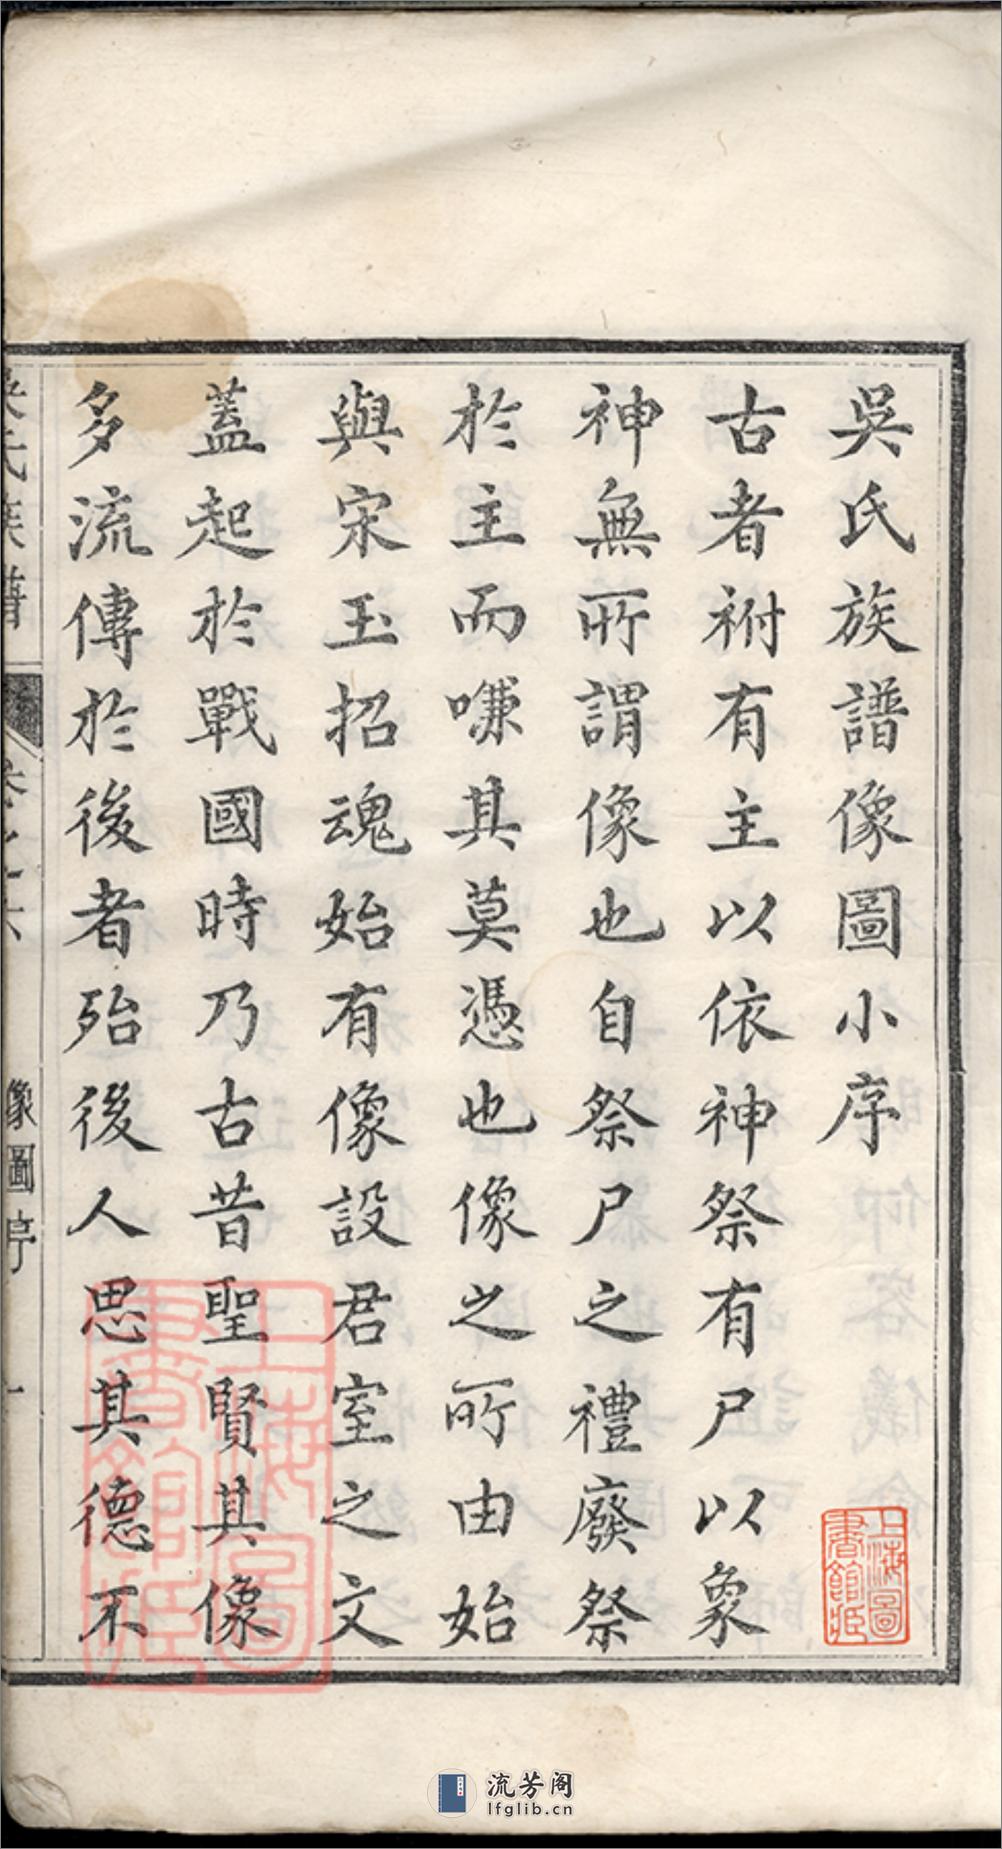 吳氏族譜像圖小序
古者祔有主以依神祭有尸以象
神無所謂像也自祭尸之禮廢祭
於主而嗛其莫憑也像之所由始
與宋玉招魂始有像設君室之文
蓋起於戰國時乃古昔聖賢其像
多流傳於後者殆後人思其德不
吳氏族譜
卷之六
像圖序
一
上海圖書館藏
上海圖書館藏
流芳阁
lfglib.cn